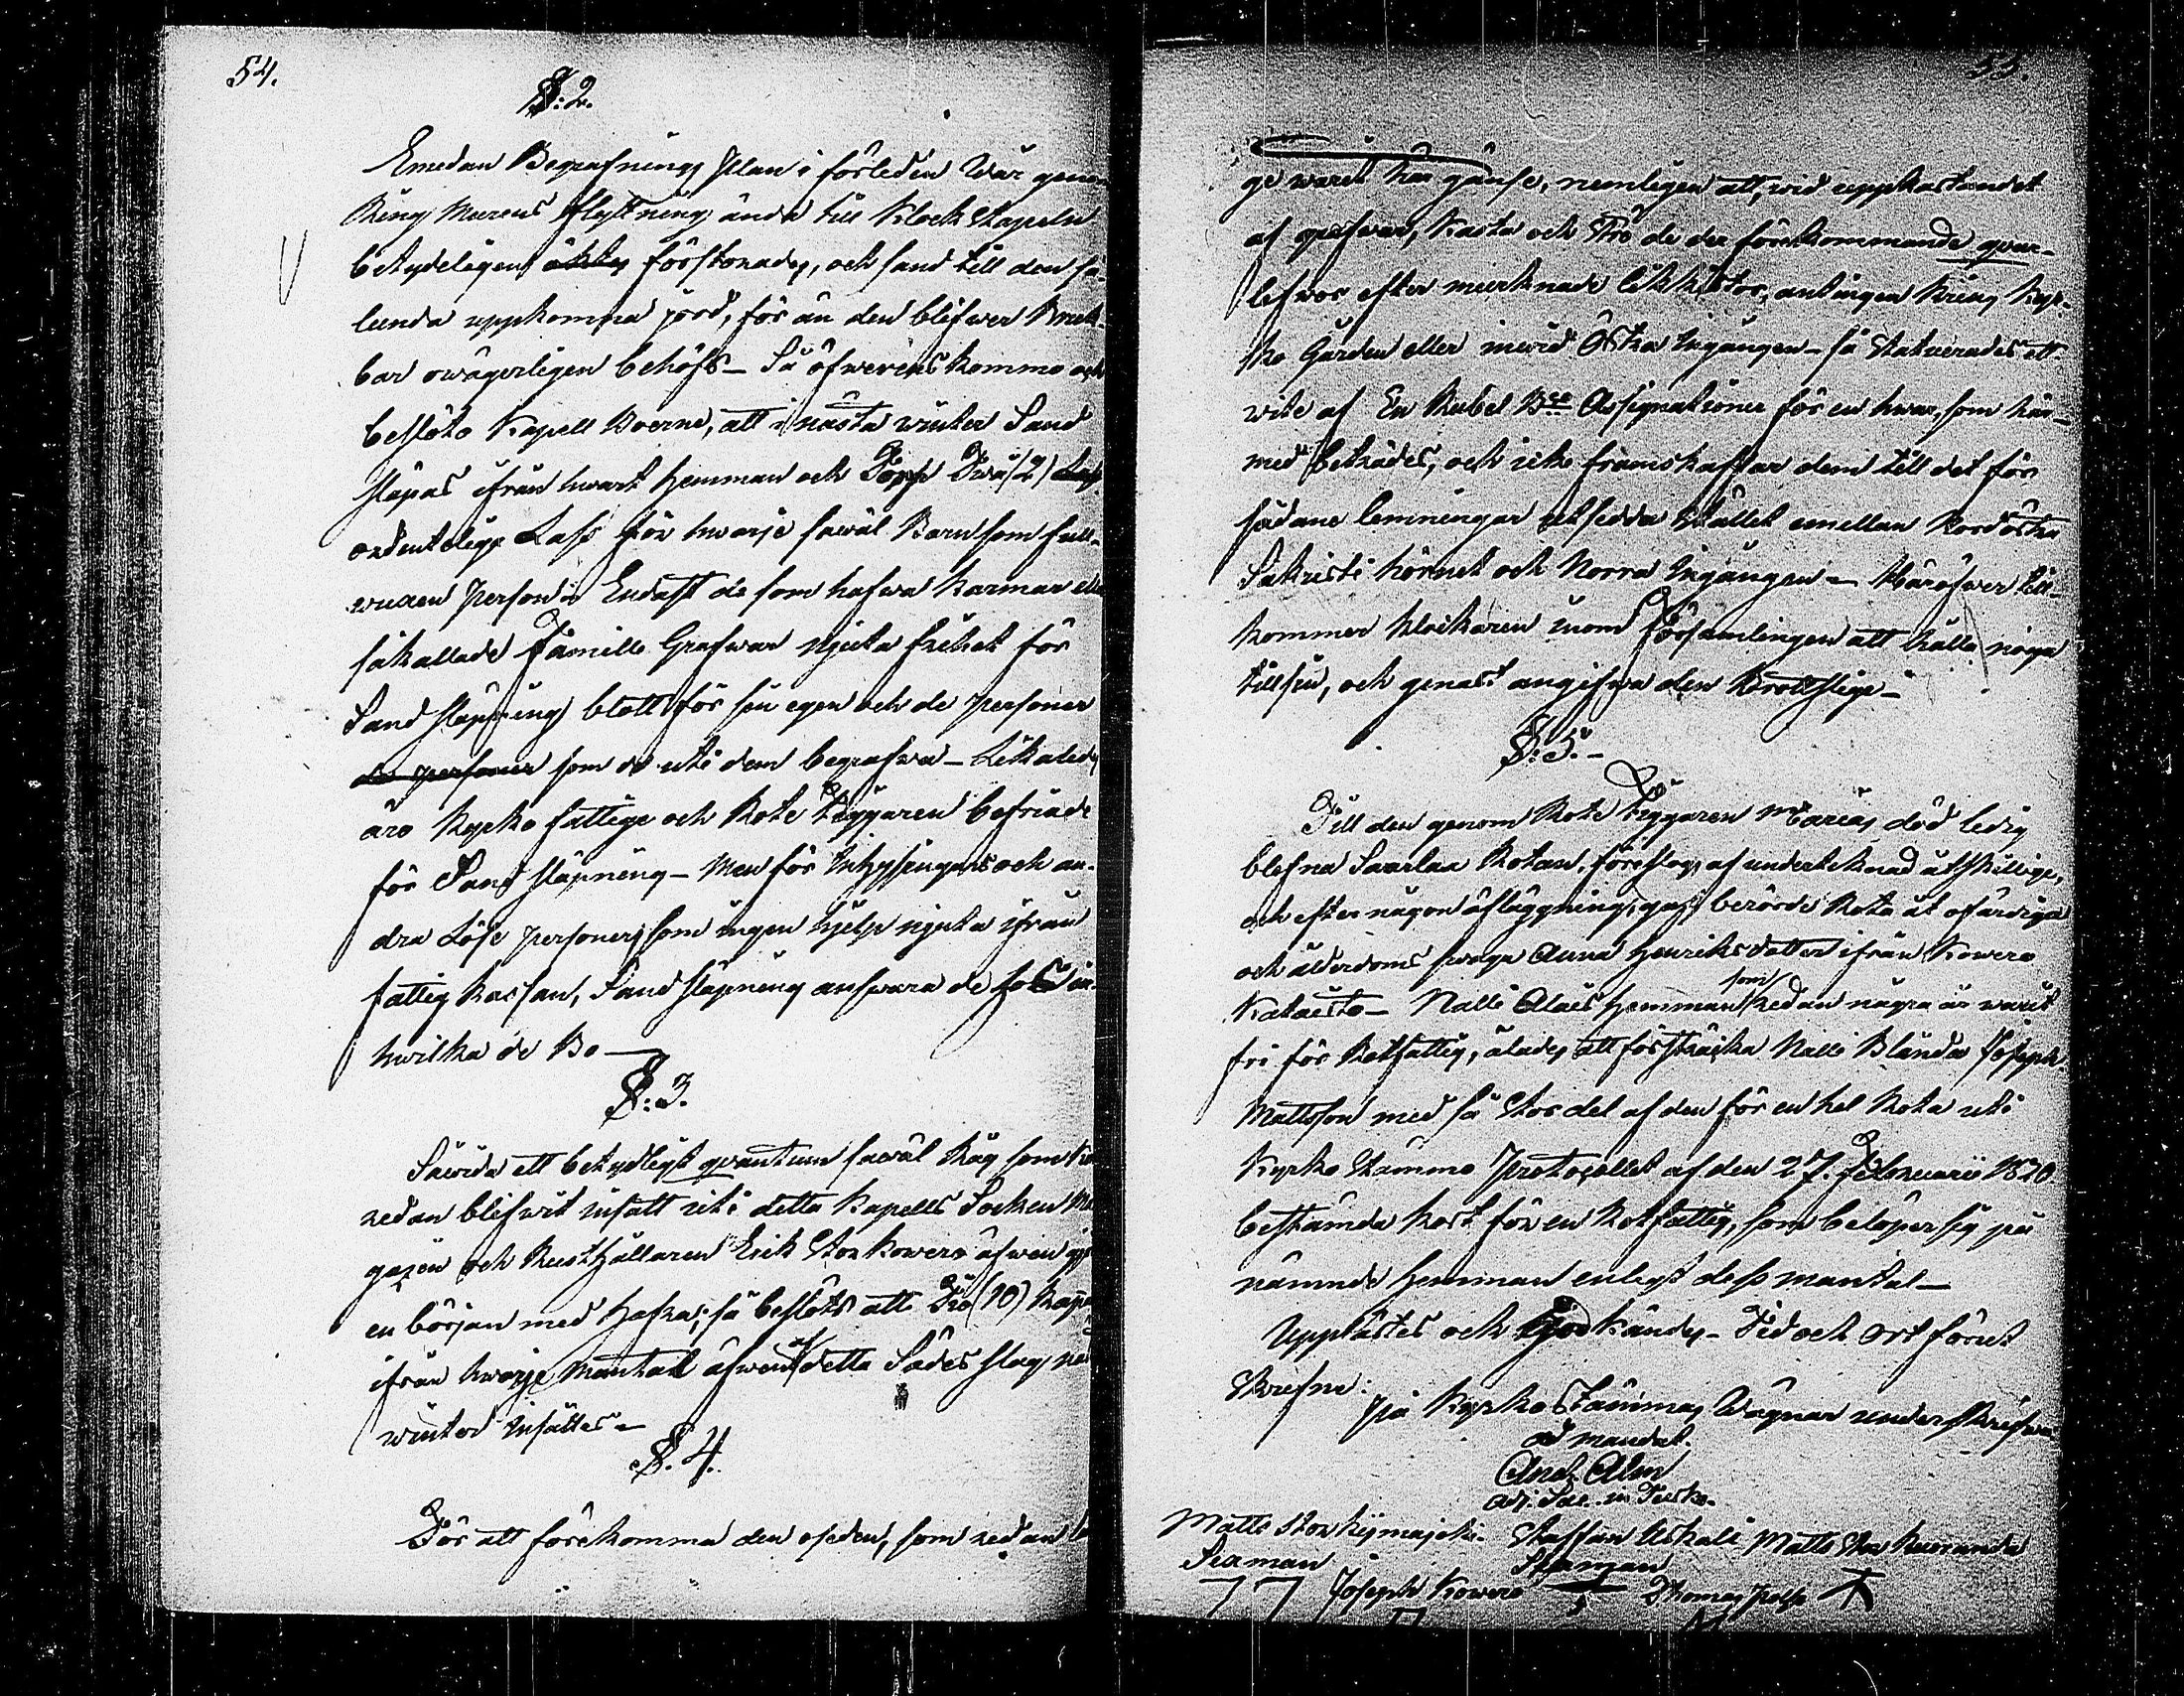 54.
§:2.
Emedan Begrafnings Plan i förleden Wår genom
Ring Murens flyttning ända till Klock Stapeln
betydeligen förstorades, och sand till den så-
lunda uppkomna jord, för än den blifver Bruk-
bar ovägerligen behöfs_ Så öfwerens kommo och
beslöto Kapell Boerne, att i nästa winter Sand
släpas ifrån hwart Hemman och Torp Twå (2)
ordentelige Lass för hwarje sawäl Barn som full-
wuxen Person_ Endast de som hafwa Karmar eller
såkallade Famille Grafwar njuta frihet för
Sand släpning blott för sin egen och de personer
de personer som de uti dem begrafwa_ Likaledes
äro Kyrko fattige och Rote Tiggaren befriade
för Sand släpning_ Men för Inhysingars och an-
dra Löse personer, som ingen hjelp njuta ifrån
fattig kassan, Sand släpning answara de hos
hwilka de Bo_
§:3.
Såwida ett betydligt quantum sawäl Råg som
redan blifwit insatt uti detta Kapells Socken Ma-
gazin och Rusthållaren Erik Stor Kowero äfwen
en början med Hafra; så beslöts att Tio (10) Kappar
ifrån hwarje Mantal äfwen af detta Sädes slag,
winter insättes_
§.4.
För att förekomma den oseden, som redan
55.
ge warit här gänse, nemligen att, wid uppkastandet
af grafwar, Kasta och Strö de der förekommande qwar-
lefwor efter murknade likkistor, antingen kring Kyr-
ko Gården eller inwid Östra Ingången_ så Statuerades ett
wite af En Rubel Bco Assignationer för en hwar, som här-
med beträdes, och icke framskaffar dem till det för
sådane lemningar utsedda Stället emellan Nordöstra
Sakristi hörnet och Norra Ingången_ Häröfwer till-
kommer klockaren inom församlingen att hålla noga
tillsin, och genast angifwa den Brottslige_
§:5._
Till den genom Rote Tiggaren Marias död ledig
blefna Saarlax Rotan, föreslogs af undertecknad åtskillige,
och efter någon öfläggning, gafs berörde Rota åt ofärdiga
och ålderdoms swaga Anna Henriksdotter ifrån Kowero
Kataisto_ Nalli Alais Hemman som redan några år warit
fri för Rotfattig, ålades att förstärka Nalli Blinda Joseph
Mattsson med så Stor del af den för en hel Rota uti
Kyrko Stämmo Protocollet af den 27. Februarii 1820
bestämda kost för en Rotfattig, som belöper sig på
nämnde Hemman enligt dess mantal_
Upplästes och Godkändes_ Tid och Ort förut
Skrefne:
På Kyrko Stämmas Wägnar underskrifwa
ad mandat.
And. Alm
Adj. Sac.
Matts Stor Staffan Uskali Matts Stor
Sexman Sexman
Joseph Kowero Thomas